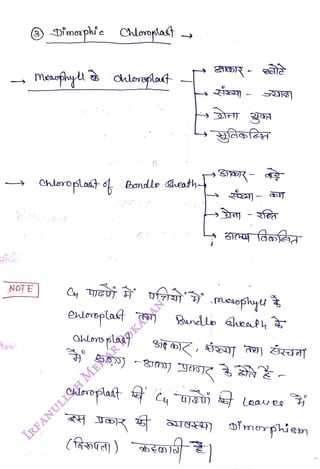 ③ Dimorphic Chloroplast →
→ Mesophyll के chloroplast
→ आकार - छोटे
→ संख्या - ज्यादा
→ ग्रेना युक्त
→ सुविकसित
→ Chloroplast of Bundle Sheath
→ आकार - बड़े
→ संख्या - कम
→ ग्रेना - रहित
→ अल्प विकसित
NOTE
C4 पादपों में पत्तियों में mesophyll के
chloroplast तथा Bundle Sheath के
chloroplast आकार, संख्या तथा संरचना
में अलग - अलग प्रकार के होते है -
chloroplast की C4 पादपों की Leaves में
इस प्रकार की व्यवस्था Dimorphism
(द्विरूपता) कहलाती है।